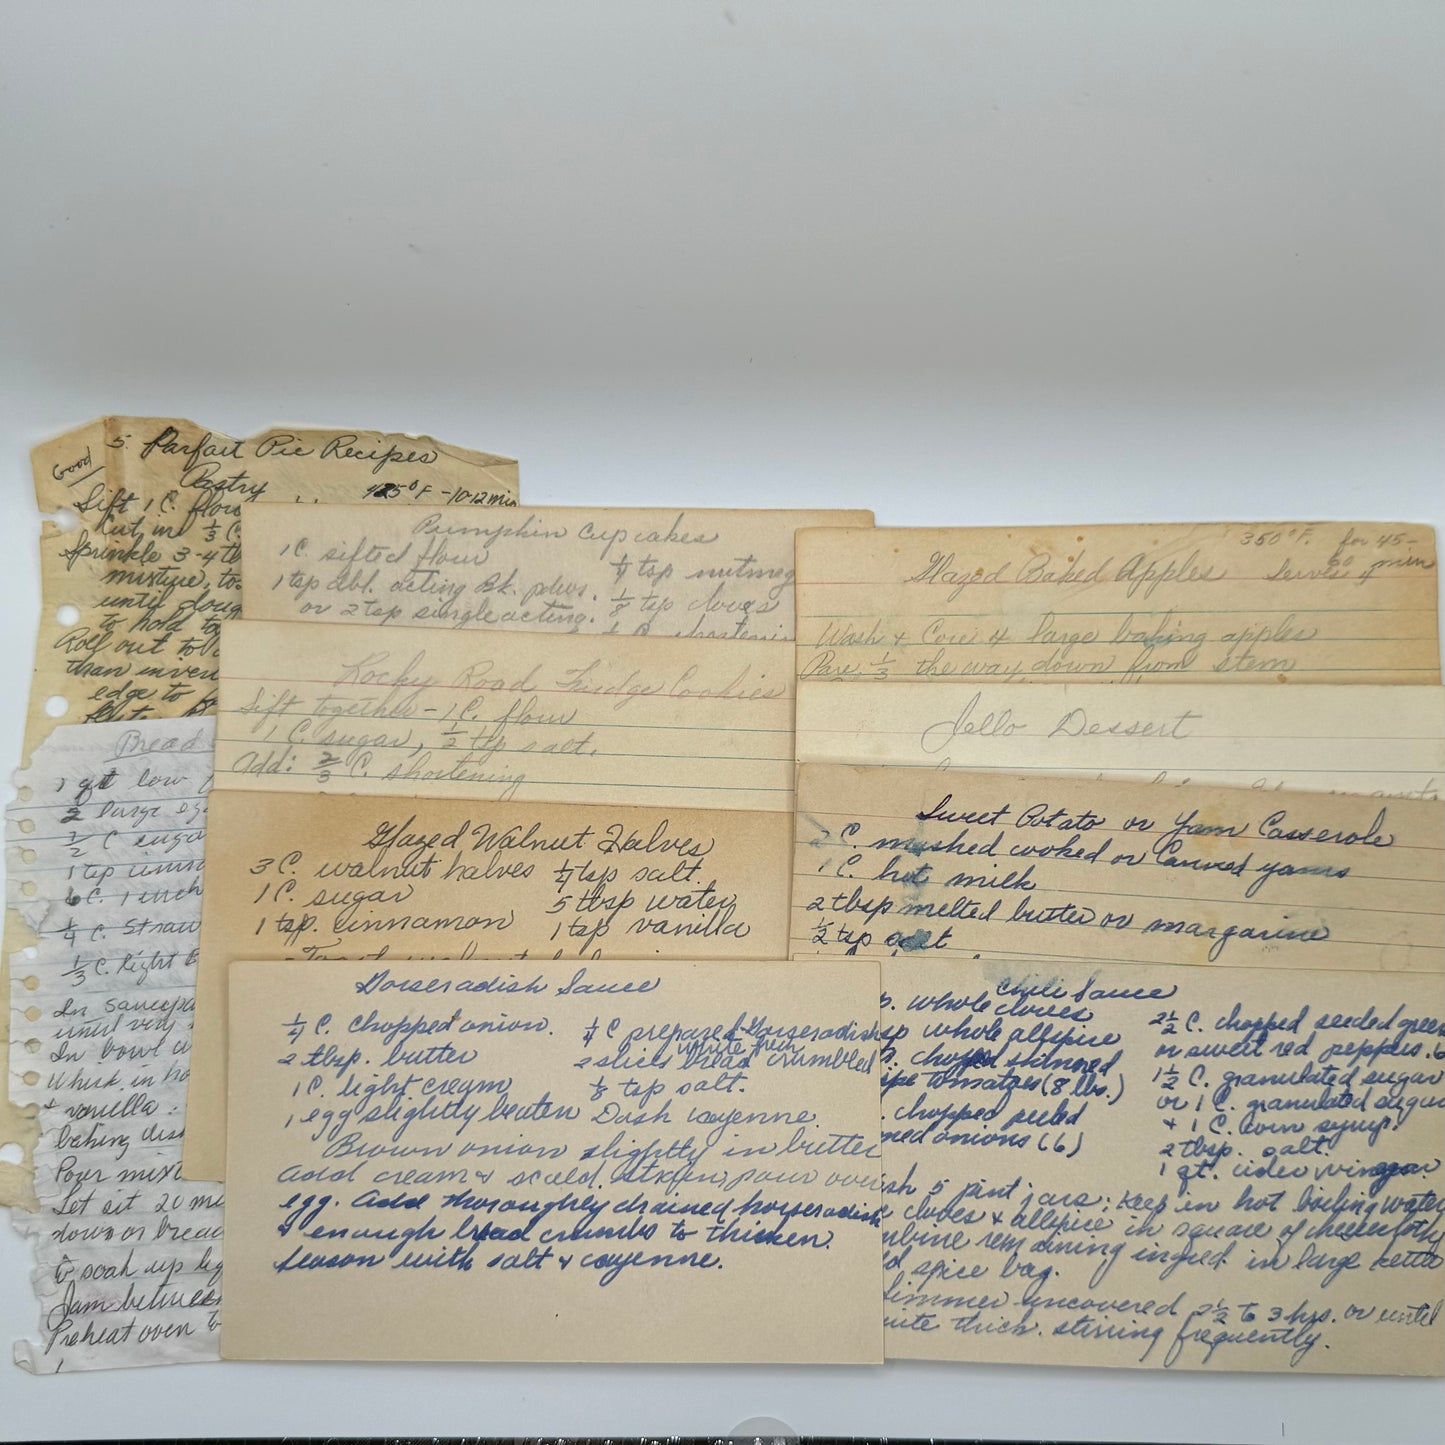 Good
5. Parfait Pie Recipes
Pastry 425°F - 10-12 min
Sift 1 C. flou
Cut in 1/3 C.
Sprinkle 3-4 tb
mixture, to
until doug
to hold to
Roll out to
than inver
edge to
Bread
1 qt low
2 large eg
1/2 C suga
1 tsp cinn
6 C. 1 inch
1/4 C. straw
1/3 C. light B
In saucepa
until very
In bowl
Whisk in ho
+ vanilla.
baking dish
Pour mixt
Let sit 20 mi
down on bread
to soak up liq
Jam between
Preheat oven to
Pumpkin Cupcakes
1 C. sifted flour 1/4 tsp nutmeg
1 tsp dbl. acting Bk. pdwr. 1/8 tsp cloves
or 2 tsp single acting. 1/4 C. shortenin
Rocky Road Fridge Cookies
Sift together - 1 C. flour
1 C. sugar, 1/2 tsp salt.
Add: 2/3 C. shortening
Glazed Walnut Halves
3 C. walnut halves 1/4 tsp salt.
1 C. sugar 5 tbsp water
1 tsp. cinnamon 1 tsp vanilla
Horseradish Sauce
1/4 C. chopped onion. 1/4 C prepared Horseradish
2 tbsp. butter 2 slices white firm bread crumbled
1 C. light cream 1/8 tsp salt.
1 egg slightly beaten Dash cayenne.
Brown onion slightly in butter
Add cream & scald, strain, pour over
egg. Add thoroughly drained horseradish
& enough bread crumbs to thicken.
Season with salt & cayenne.
350°F. for 45-
60 min
Glazed Baked Apples Serves 4
Wash & Core 4 large baking apples
Pare 1/3 the way down from stem
Jello Dessert
Sweet Potato or Yam Casserole
2 C. mashed cooked or Canned yams
1 C. hot milk
2 tbsp melted butter or margarine
1/2 tsp salt
Chili Sauce
p. whole cloves 2 1/2 C. chopped seeded green
sp whole allspice or sweet red peppers. 6
. chopped skinned 1 1/2 C. granulated sugar
ipe tomatoes (8 lbs.) or 1 C. granulated sugar
. chopped peeled + 1 C. corn syrup.
ned onions (6) 2 tbsp. salt.
1 qt. cider vinegar
sh 5 pint jars: keep in hot boiling water
e cloves & allspice in square of cheesecloth
mbine remaining ingred. in large kettle
d spice bag.
Simmer uncovered 2 1/2 to 3 hrs. or until
uite thick. stirring frequently.